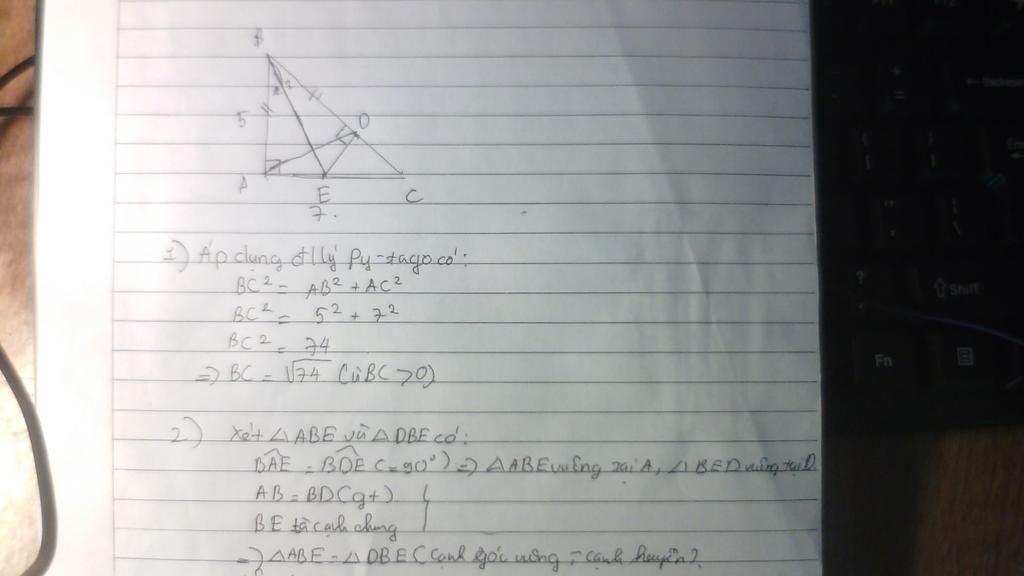 B
5
D
A
E
C
7.
1) Áp dụng đ/lý Py-tago có:
BC² = AB² + AC²
BC² = 5² + 7²
BC² = 74
=> BC = √74 (vì BC > 0)
2) Xét △ABE và △DBE có:
BAE = BDE (= 90°) => △ABE vuông tại A, △BED vuông tại D
AB = BD (gt)
BE là cạnh chung
=> △ABE = △DBE (cạnh góc vuông - cạnh huyền)